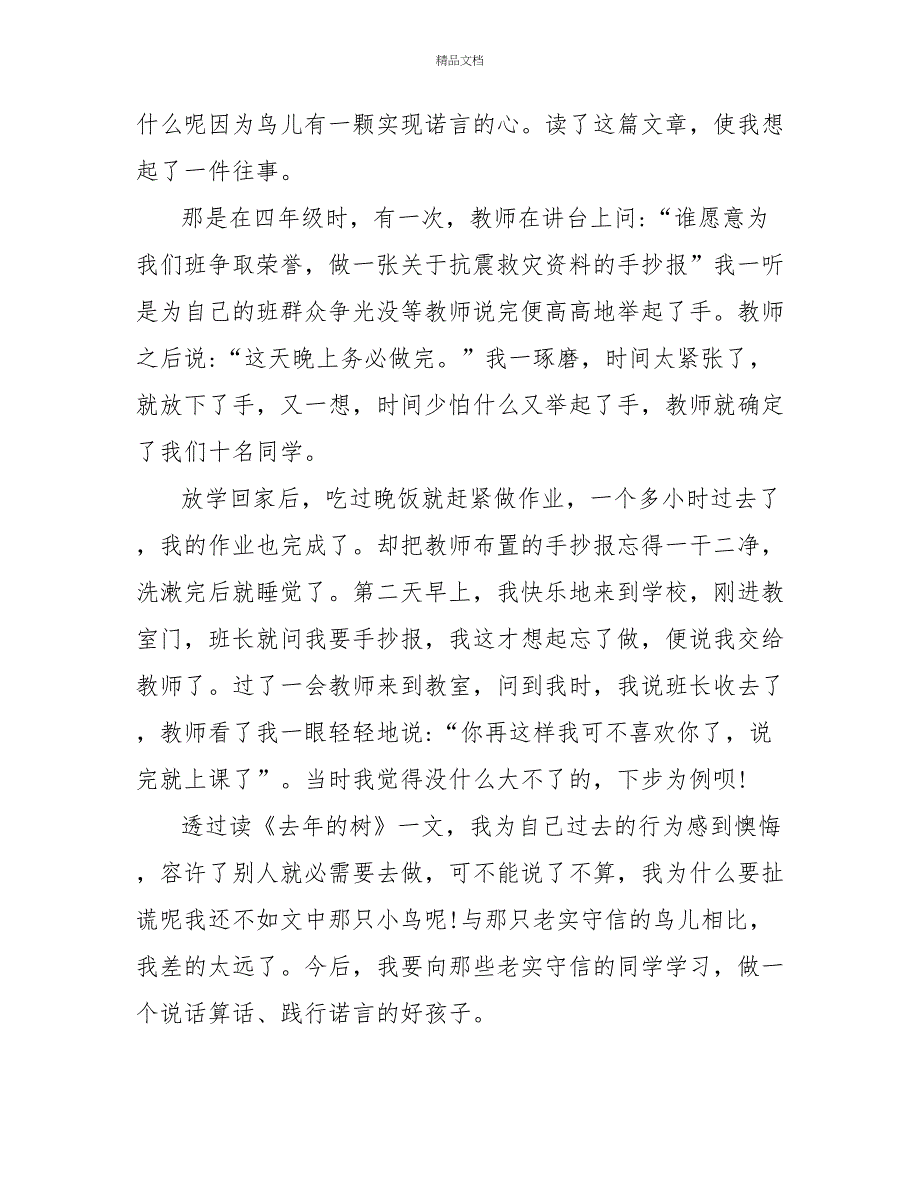 精品文档
什么呢因为鸟儿有一颗实现诺言的心。读了这篇文章，使我想
起了一件往事。
那是在四年级时，有一次，教师在讲台上问:“谁愿意为
我们班争取荣誉，做一张关于抗震救灾资料的手抄报”我一听
是为自己的班群众争光没等教师说完便高高地举起了手。教师
之后说:“这天晚上务必做完。”我一琢磨，时间太紧张了，
就放下了手，又一想，时间少怕什么又举起了手，教师就确定
了我们十名同学。
放学回家后，吃过晚饭就赶紧做作业，一个多小时过去了
，我的作业也完成了。却把教师布置的手抄报忘得一干二净，
洗漱完后就睡觉了。第二天早上，我快乐地来到学校，刚进教
室门，班长就问我要手抄报，我这才想起忘了做，便说我交给
教师了。过了一会教师来到教室，问到我时，我说班长收去了
，教师看了我一眼轻轻地说:“你再这样我可不喜欢你了，说
完就上课了”。当时我觉得没什么大不了的，下步为例呗!
透过读《去年的树》一文，我为自己过去的行为感到懊悔
，容许了别人就必需要去做，可不能说了不算，我为什么要扯
谎呢我还不如文中那只小鸟呢!与那只老实守信的鸟儿相比，
我差的太远了。今后，我要向那些老实守信的同学学习，做一
个说话算话、践行诺言的好孩子。